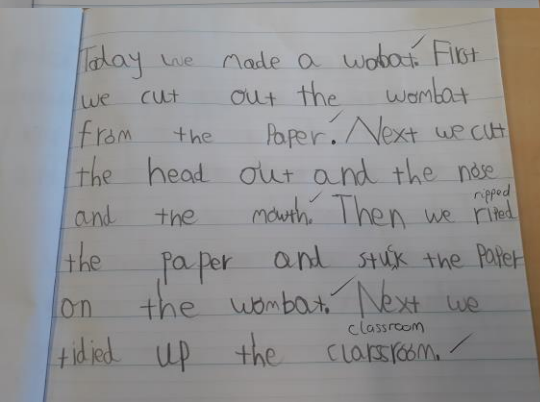 Today we made a wobat. First
we cut out the wombat
from the Paper. Next we cut
the head out and the nose
and the mouth. Then we
ripped
rited
the paper and stuk the Paper
on the wombat. Next we
classroom
tidied up the clarssroom.